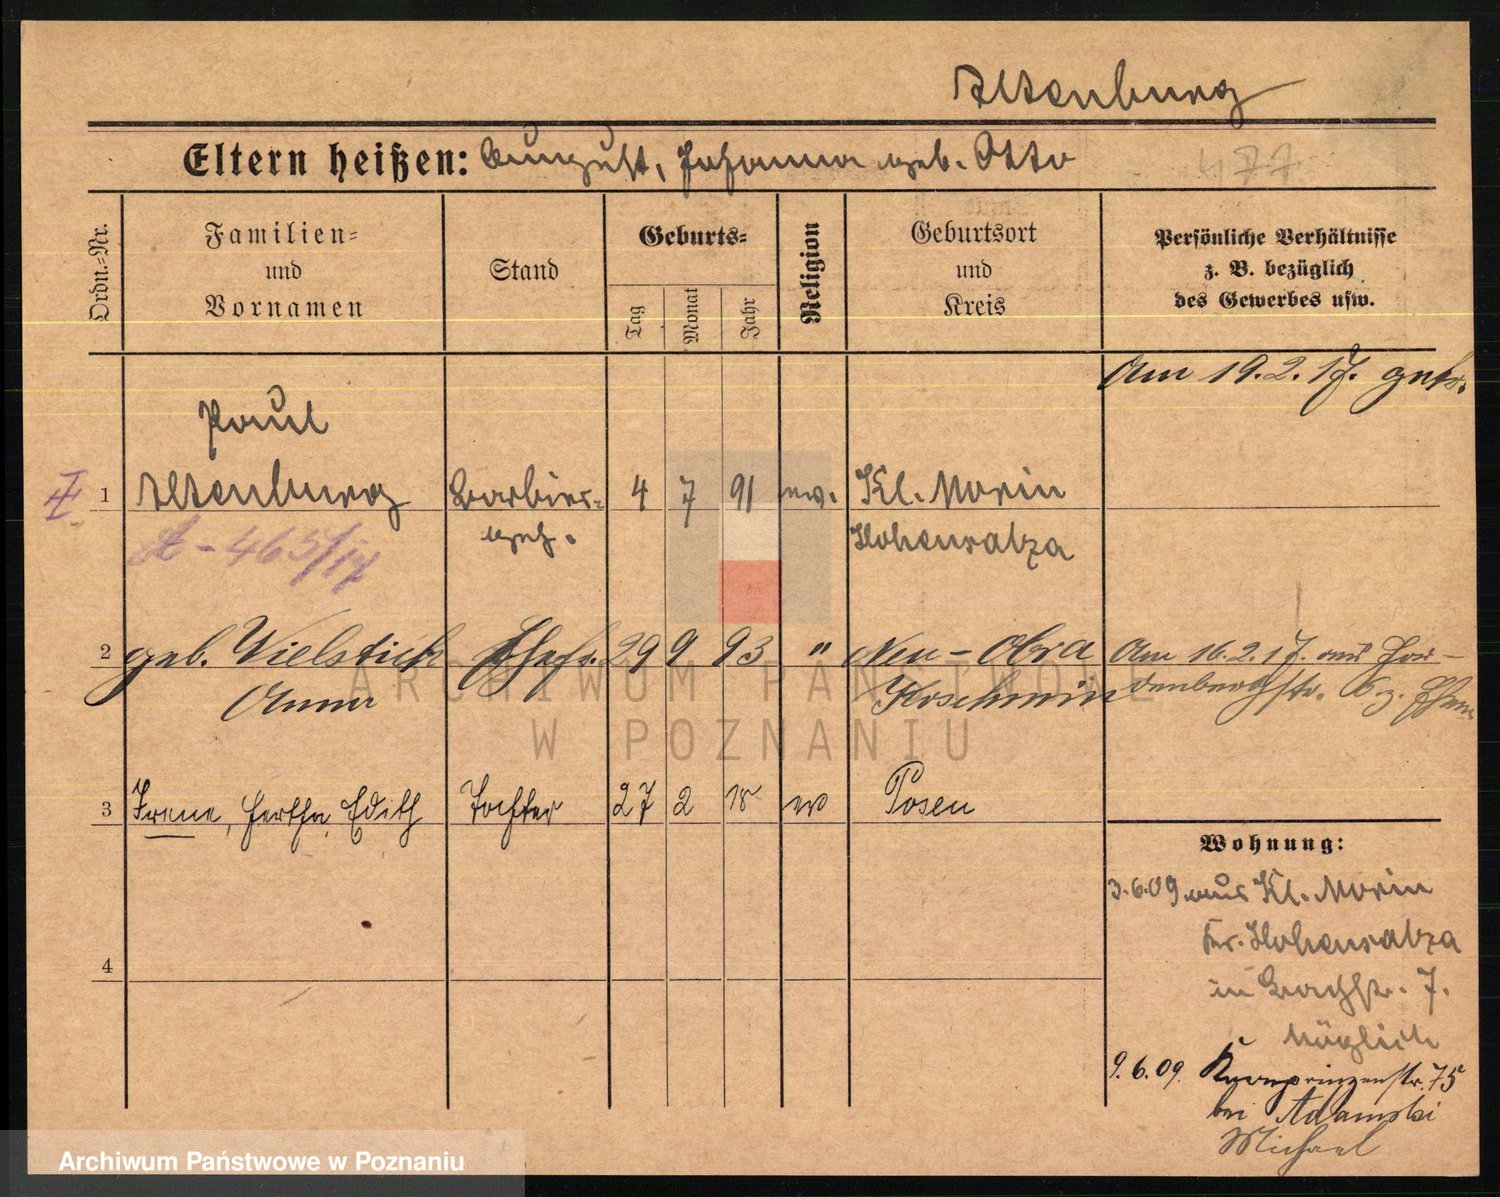 Altenburg
Eltern heißen: August, Johanna geb. Otto
477
Ordn.=Nr.
Familien=
und
Vornamen
Stand
Geburts=
Tag
Monat
Jahr
Religion
Geburtsort
und
Kreis
Persönliche Verhältnisse
z. B. bezüglich
des Gewerbes usw.
Am 19.2.17. getr.
Paul
1 Altenburg Barbier= 4 7 91 ev. Kl. Morin
geh. Hohensalza
A - 465/17
2 geb. Vielstich Ehefr. 29 9 93 " Neu - Obra Am 16.2.17. aus
Anna Koschmin
3 Irene, Hertha, Edith Tochter 27 2 18 ev Posen
4
Wohnung:
3.6.09 aus Kl. Morin
Kr. Hohensalza
in Bachstr. 7.
9.6.09. Kronprinzenstr. 75
bei Adamski
Michael
ARCHIWUM PAŃSTWOWE
W POZNANIU
Archiwum Państwowe w Poznaniu